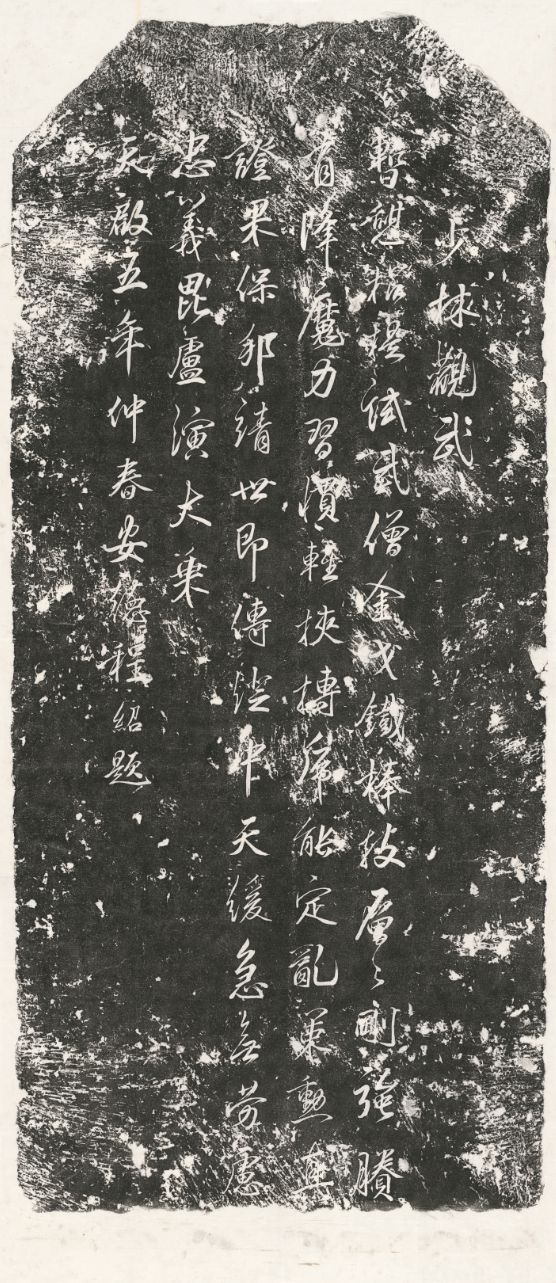 少林觀武
暫憇招提試武僧金戈鐵棒技層〻剛強賸
有降魔力習慣輕挾搏虎能定亂策勳真
證果保邦靖世即傳燈中天緩急無勞慮
忠義毘盧演大乘
天啟五年仲春安德程紹題